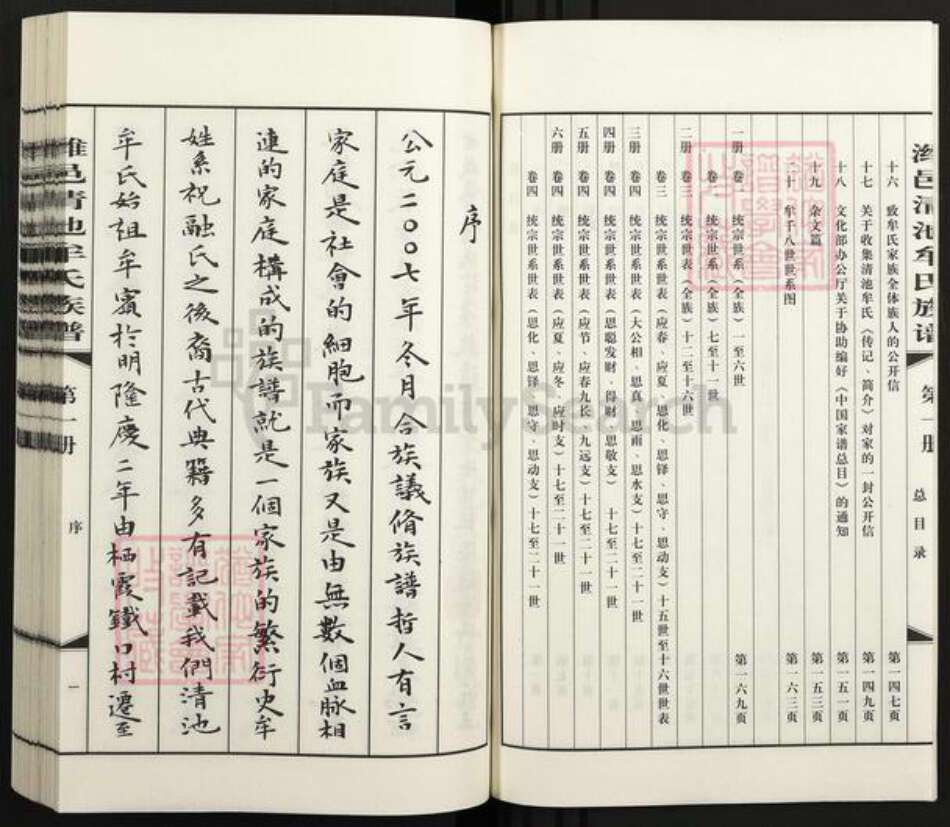 潍邑清池牟氏族谱 第一册 总目录
十六 致牟氏家族全体族人的公开信 第一四七页
十七 关于收集清池牟氏（传记、简介）对家的一封公开信 第一四九页
十八 文化部办公厅关于协助编好《中国家谱总目》的通知 第一五一页
十九 杂文篇 第一五三页
二十 牟千八世世系图 第一六三页
一册 卷二 统宗世系（全族）一至六世 第一六九页
卷二 统宗世系（全族）七至十一世
二册 卷三 统宗世系表（全族）十二至十六世
卷三 统宗世系表（应春、应夏、思化、思铎、思守、思动支）十五世至十六世世表
三册 卷四 统宗世系世表（大公相、思真、思雨、思水支）十七至二十一世
四册 卷四 统宗世系世表（思聪发财、得财、思敬支）十七至二十一世
五册 卷四 统宗世系世表（应节、应春九长、九远支）十七至二十一世
六册 卷四 统宗世系世表（应夏、应冬、应时支）十七至二十一世
卷四 统宗世系世表（思化、思铎、思守、思动支）十七至二十一世
序
公元二〇〇七年冬月合族議脩族譜哲人有言
家庭是社會的細胞而家族又是由無數個血脈相
連的家庭構成的族譜就是一個家族的繁衍史牟
姓系祝融氏之後裔古代典籍多有記載我們清池
牟氏始祖牟賓於明隆慶二年由栖霞鐵口村遷至
潍邑清池牟氏族譜 第一册 序 一
FamilySearch